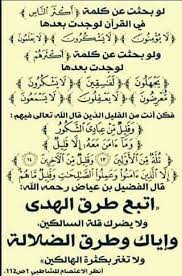 لو بحثت عن كلمة ﴿ أَكْثَرَ النَّاسِ ﴾
في القرآن لوجدت بعدها
﴿ لَا يَعْلَمُونَ ﴾ ﴿ لَا يَشْكُرُونَ ﴾ ﴿ لَا يُؤْمِنُونَ ﴾
ولو بحثت عن كلمة ﴿ أَكْثَرَهُمْ ﴾
لوجدت بعدها
﴿ لَا يَشْكُرُونَ ﴾ ﴿ لَفَاسِقِينَ ﴾ ﴿ يَجْهَلُونَ ﴾
﴿ لَا يَسْمَعُونَ ﴾ ﴿ لَا يَعْقِلُونَ ﴾ ﴿ مُعْرِضُونَ ﴾
فكن أنت من القليل الذين قال الله تعالى فيهم :
﴿ وَقَلِيلٌ مِنْ عِبَادِيَ الشَّكُورُ ﴾
﴿ ثُلَّةٌ مِنَ الْأَوَّلِينَ ١٣ وَقَلِيلٌ مِنَ الْآخِرِينَ ١٤ ﴾
قال الفضيل بن عياض رحمه الله :
« اتبع طرق الهدى
ولا يضرك قلة السالكين
وإياك وطرق الضلالة
ولا تغتر بكثرة الهالكين »
انظر الاعتصام للشاطبي 1ص112.